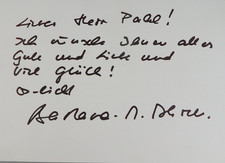 Lieber Herr Pahl!
Ich wünsche Ihnen alles
Gute und Liebe und
viel Glück!
Barbara M.